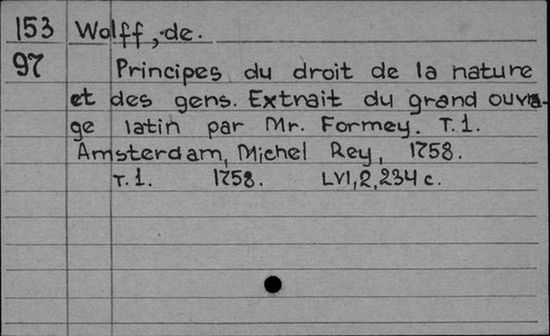 153 Wolff, de.
97 Principes du droit de la nature
et des gens. Extrait du grand ouvra-
ge latin par Mr. Formey. T. 1.
Amsterdam, Michel Rey, 1758.
T. 1. 1758. LVI, 2, 234 c.